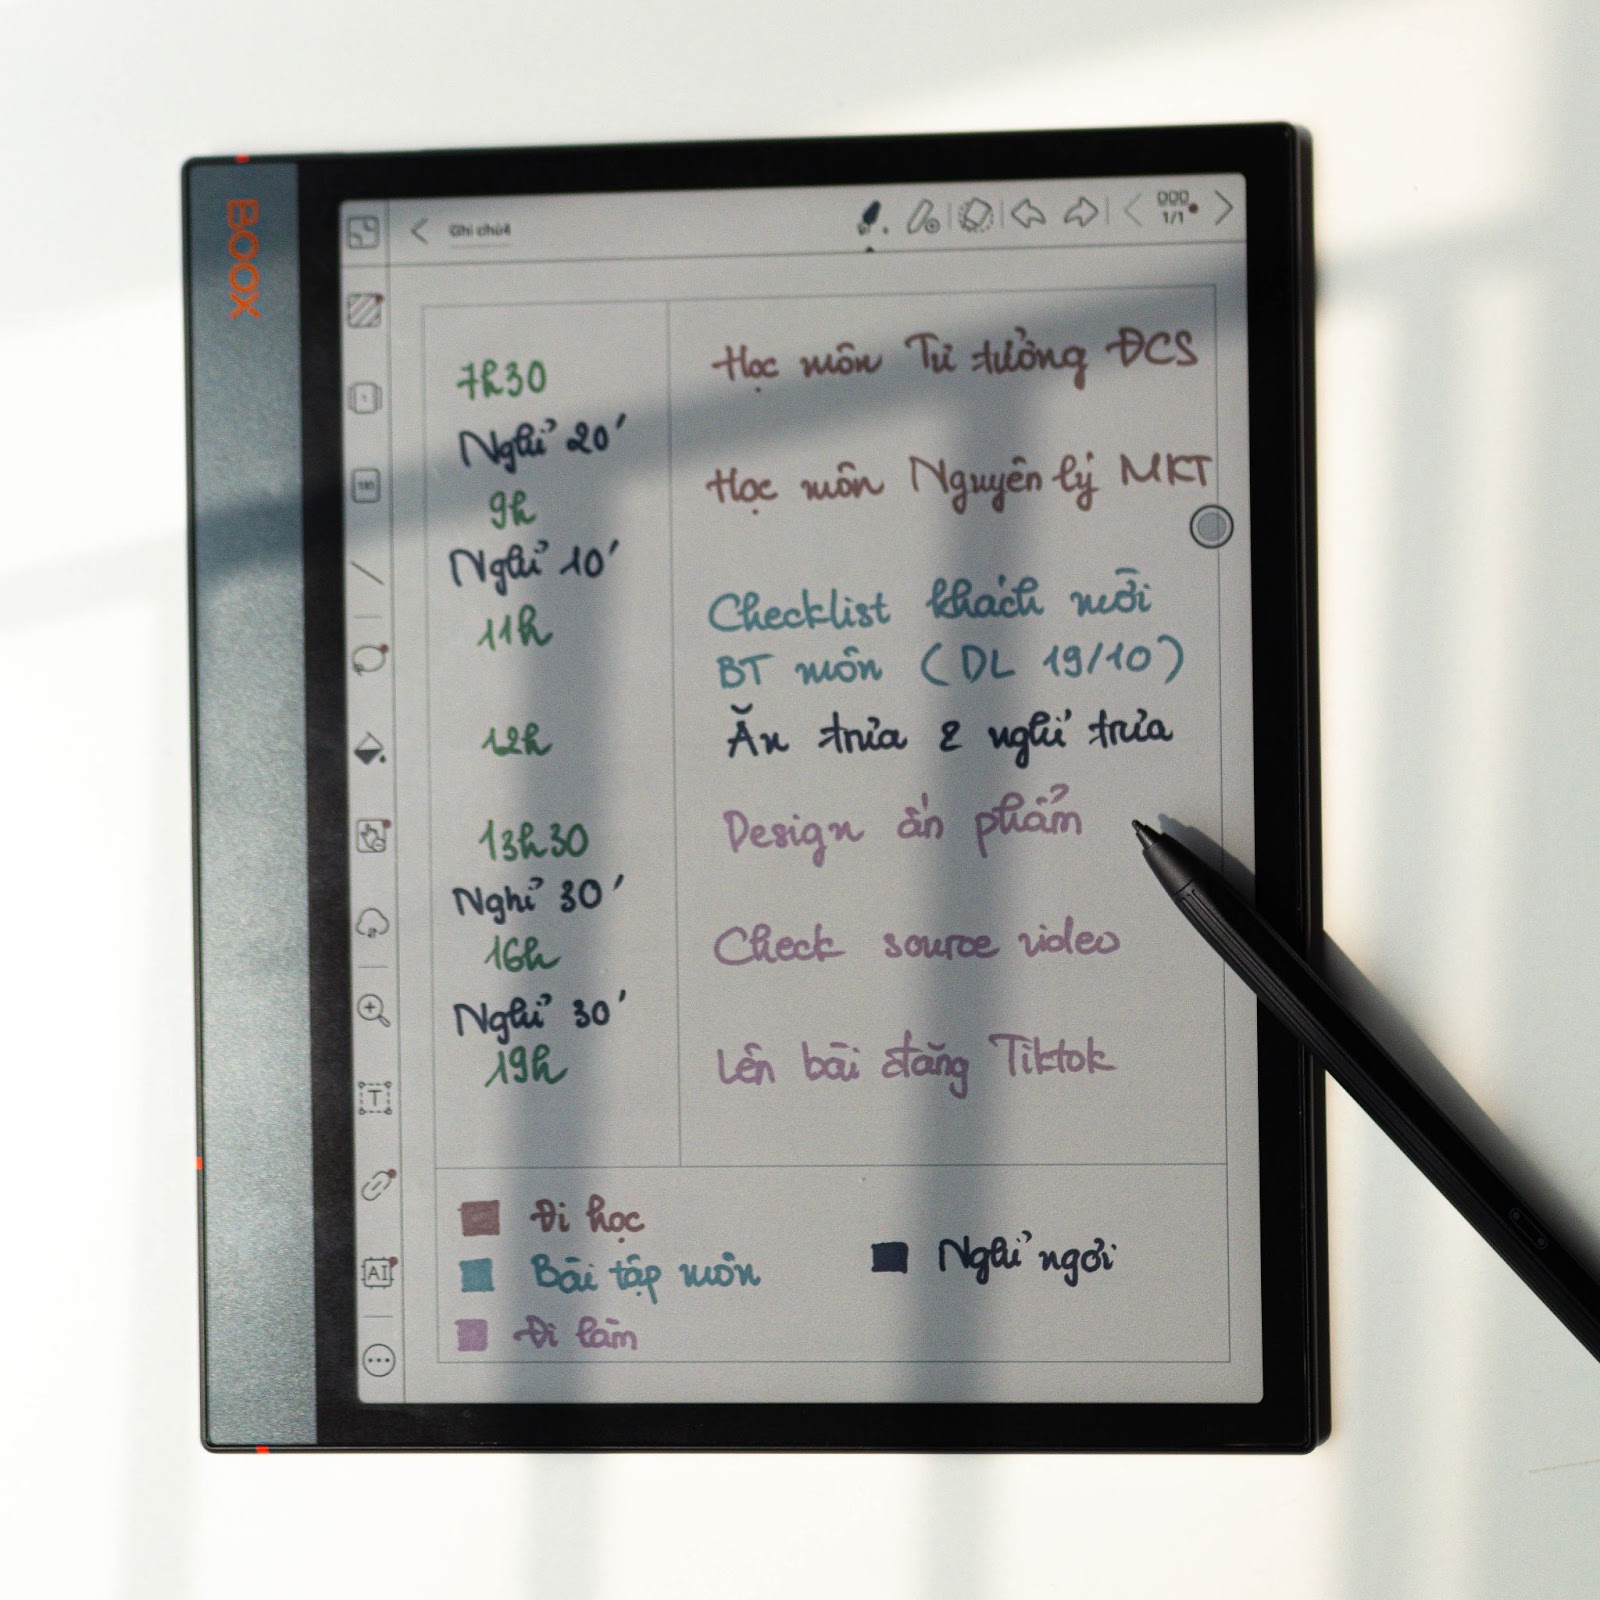 BOOX
Ghi chú4
1/1
7h30
Học môn Tư tưởng ĐCS
Nghỉ 20'
9h
Học môn Nguyên lý MKT
Nghỉ 10'
11h
Checklist khách mời
BT môn (DL 19/10)
12h
Ăn trưa & nghỉ trưa
13h30
Design ấn phẩm
Nghỉ 30'
16h
Check source video
Nghỉ 30'
19h
Lên bài đăng Tiktok
T
AI
Đi học
Bài tập môn
Đi làm
Nghỉ ngơi